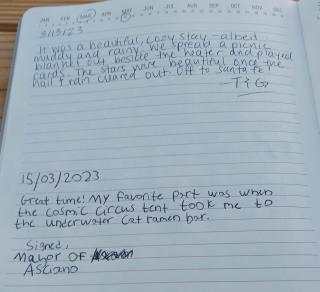 JAN FEB MAR APR MAY JUN JUL AUG SEP OCT NOV DEC
3/13/23
It was a beautiful, cozy stay - albeit
muddy and rainy. We spread a picnic
blanket out beside the heater and played
cards. The stars were beautiful once the
hail & rain cleared out. Off to Santa fe!
- T & G
15/03/2023
Great time! My favorite part was when
the cosmic circus tent took me to
the underwater cat ramen bar.
Signed,
Mayor OF
Asciano